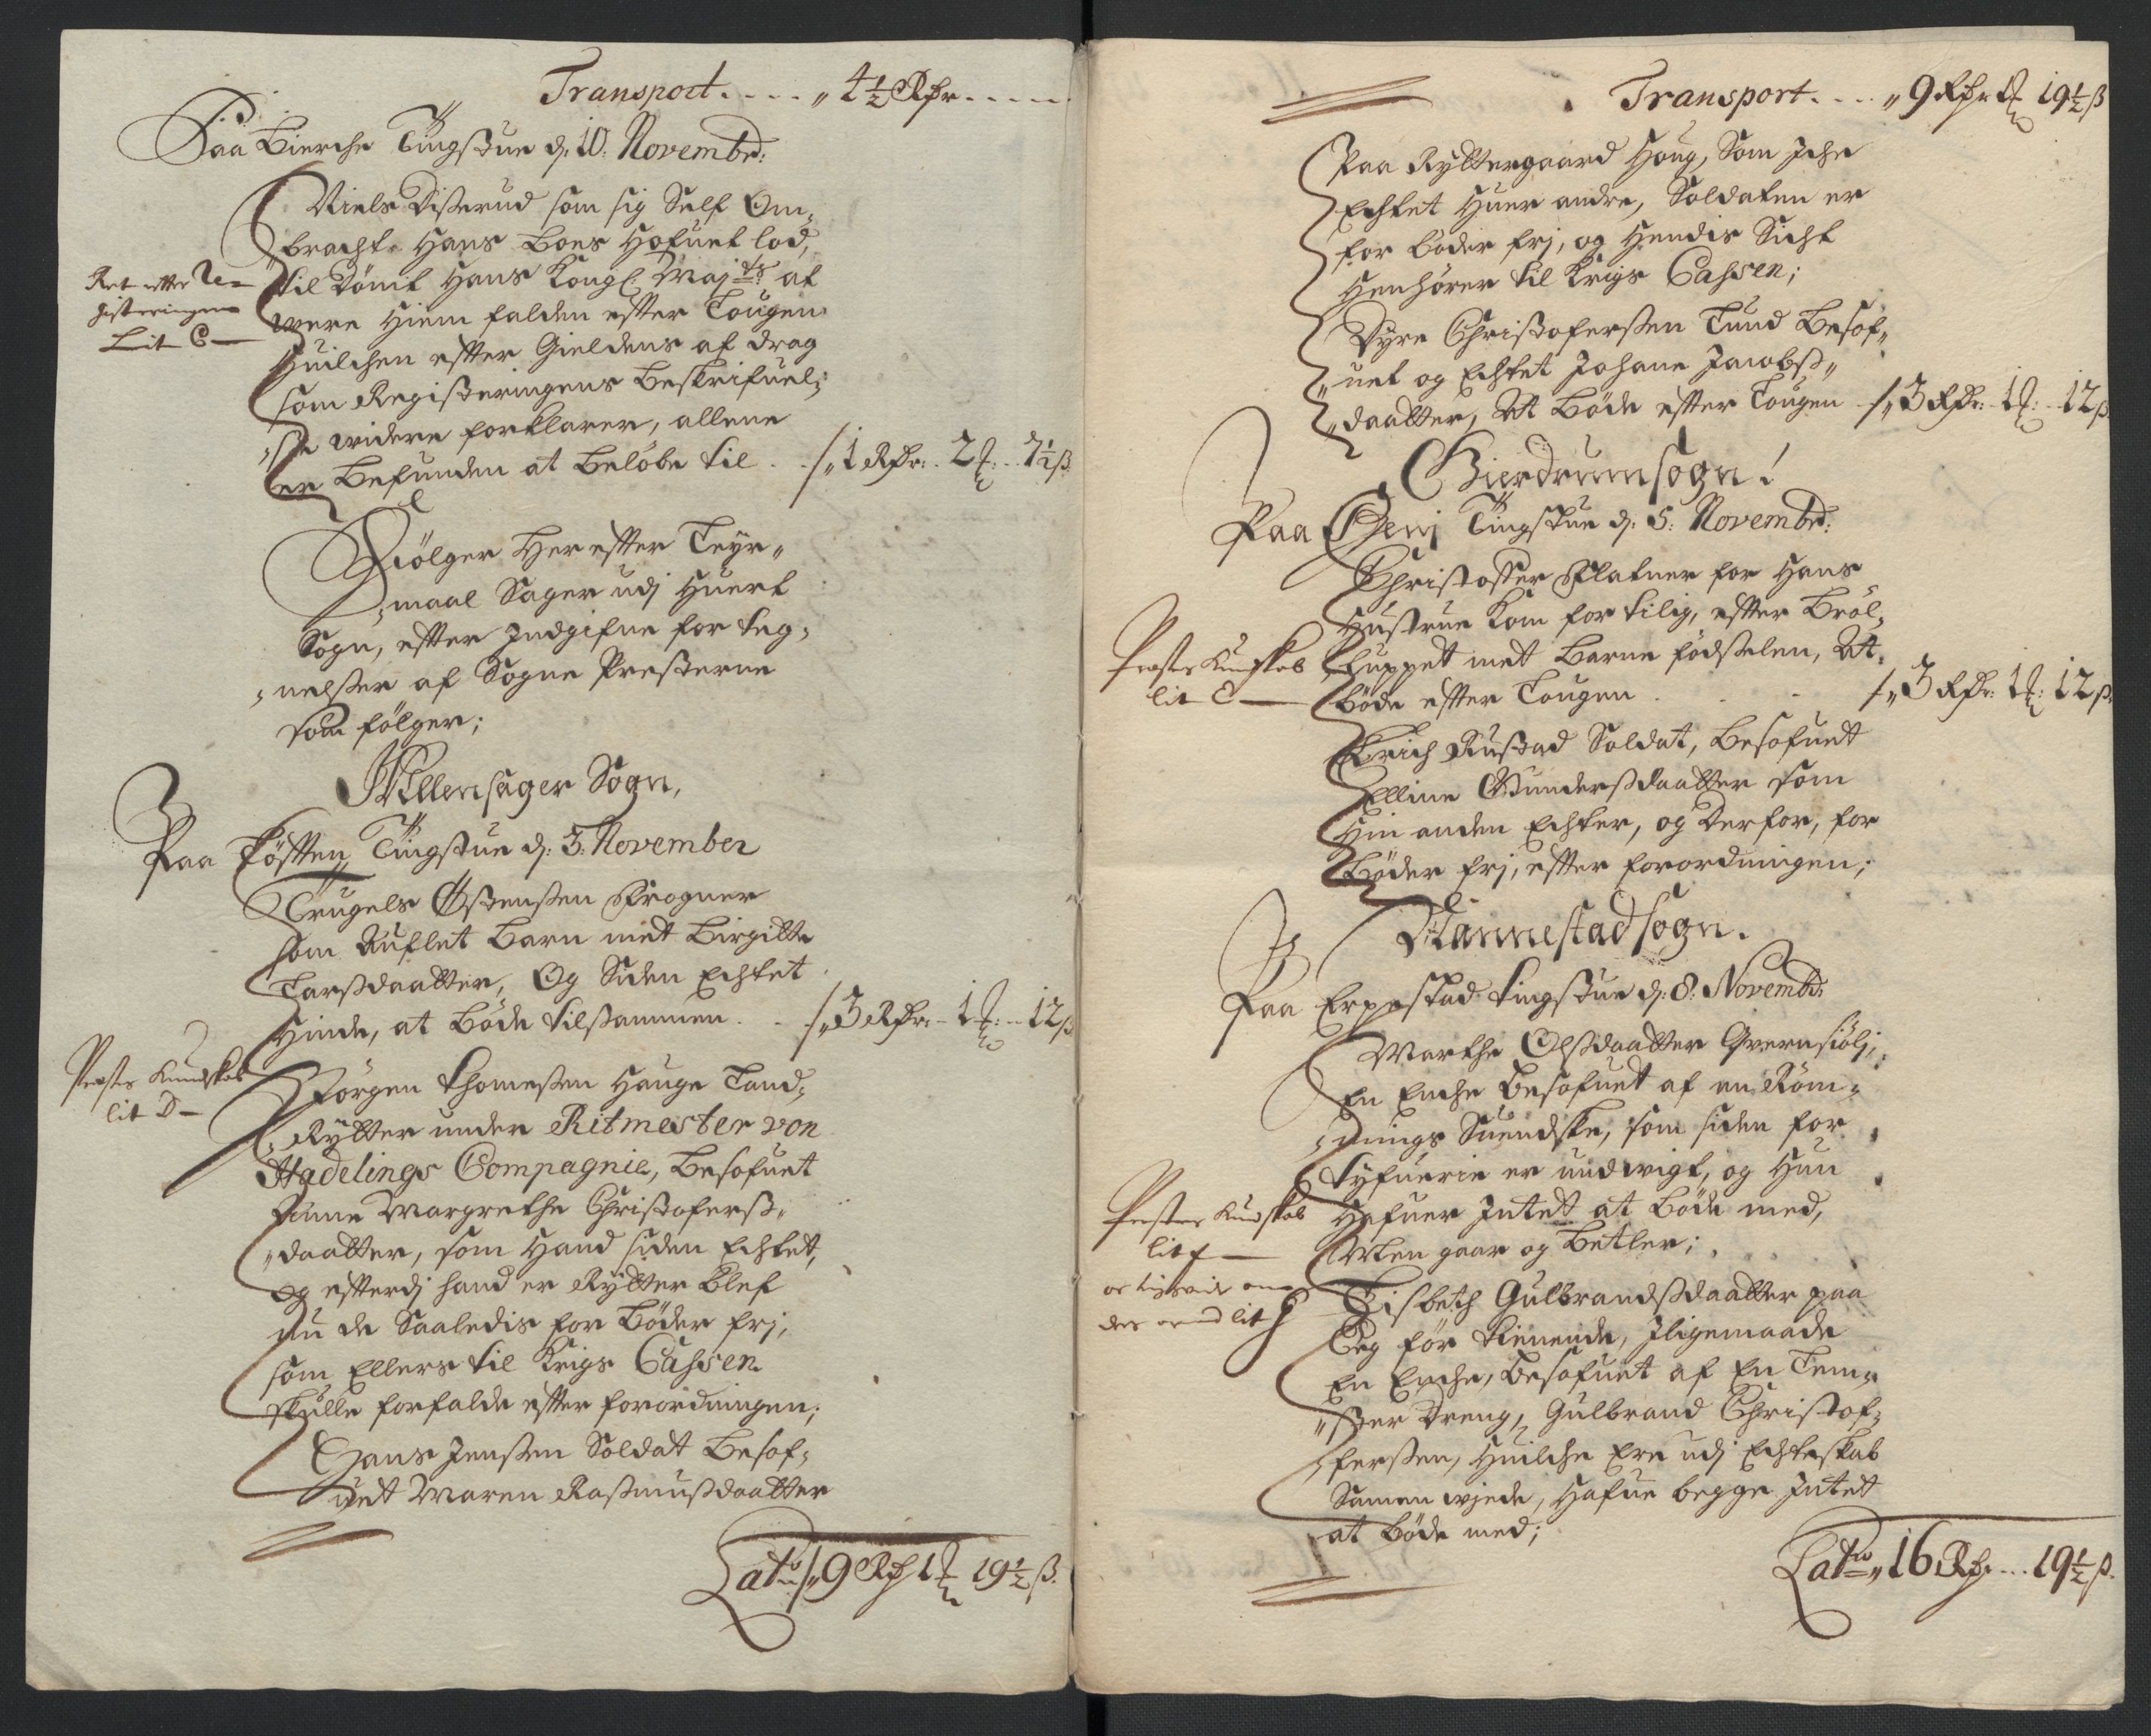 Transport.... „ 4½ Rdr.....
Paa Bierche Tingstue d: 10: Novembr:
Niels Disserud som sig Self Om„
bracht. Hans Boes Hofuet lod,
til Dömt Hans Kongl. Maj:ts at
were Hiem falden effter Lougen
Huilchen effter Gieldens af drag
som Registeringens Beskrifuel„
„se widere forklarer, allene
er Befunden at Belöbe til . . /„ 1 Rdr: 2 ʠ: 7½ ß
Ret effter Re=
gisteringen
Lit C
Fölger Her effter Leyer„
„maal Sager udj Huert
Sogn, effter Indgifne for teg„
„nelsser af Sogne Presterne
som fölger;
Ullensager Sogn,
Paa Köstten Tingstue d: 3: November
Trugels Östensen Frogner
som Auflet Barn met Birgitte
Larsdaatter, Og Siden Echtet
Hinde, at Böde tilsammen . . /„ 3 Rdr: 1 ʠ: 12 ß
Prestes Kundskab
lit D
Jörgen Thomesen Hauge Land„
„Rytter under Ritmester von
Hadelings Compagnie, Besofuet
Anne Margrethe Christofers„
„daatter, som Hand siden Echtet,
og efftterdj hand er Rytter blef
nu de Saaledis for Böder frj,
som Ellers til Krigs Cassen
skulle forfalde effter forordningen;
Hans Jensen Soldat Besof„
uet Maren Rasmusdaatter
Lat: /„ 9 Rdr 1 ʠ 19½ ß.
Transport.... „ 9 Rdr 1 ʠ 19½ ß
Paa Ryttergaard Houg, Som Iche
Echtet Huer andre, Soldaten er
for böder frj, og Hendis Sicht
Henhörer til Krigs Cassen;
Dyre Christofersen Lund Besof„
„uet og Echtet Johane Jacobs„
„daatter, At Böde effter Lougen /„ 3 Rdr: 1 ʠ: 12 ß
Gierdrum sogn!
Paa Tingstue d: 5: Novembr:
Christoffer Flatner for Hans
Hustrue Kom for tilig, effter Bröl„
luppet met Barne födselen, At
böde effter Lougen . . /„ 3 Rdr: 1 ʠ: 12 ß
Prestes Kundskab
lit E
Erich Rustad Soldat, Besofuet
Elline Gundersdaatter som
Hin anden Echter, og Derfor, for
Böder frj, effter forordningen;
Nannestad sogn.
Paa Erpestad tingstue d: 8: Novembr
Marthe Olsdaatter
En Enche Besofuet af en Röm„
„nings Suendske, som siden for
tyfuerie er undwigt, og Hun
Hafuer Intet at böde med,
Men gaar og Betler;
Prestes Kundskab
lit f
des lit G
Lisbeth Gulbrandsdaatter paa
för tienende, Iligemaade
En Enche, besofuet af En
Dreng, Gulbrand Christof„
„fersen, Huilche Ere udj Echteskab
Samen wjede, Hafue begge Intet
at böde med;
Lat: „ 16 Rdr... 19½ ß.